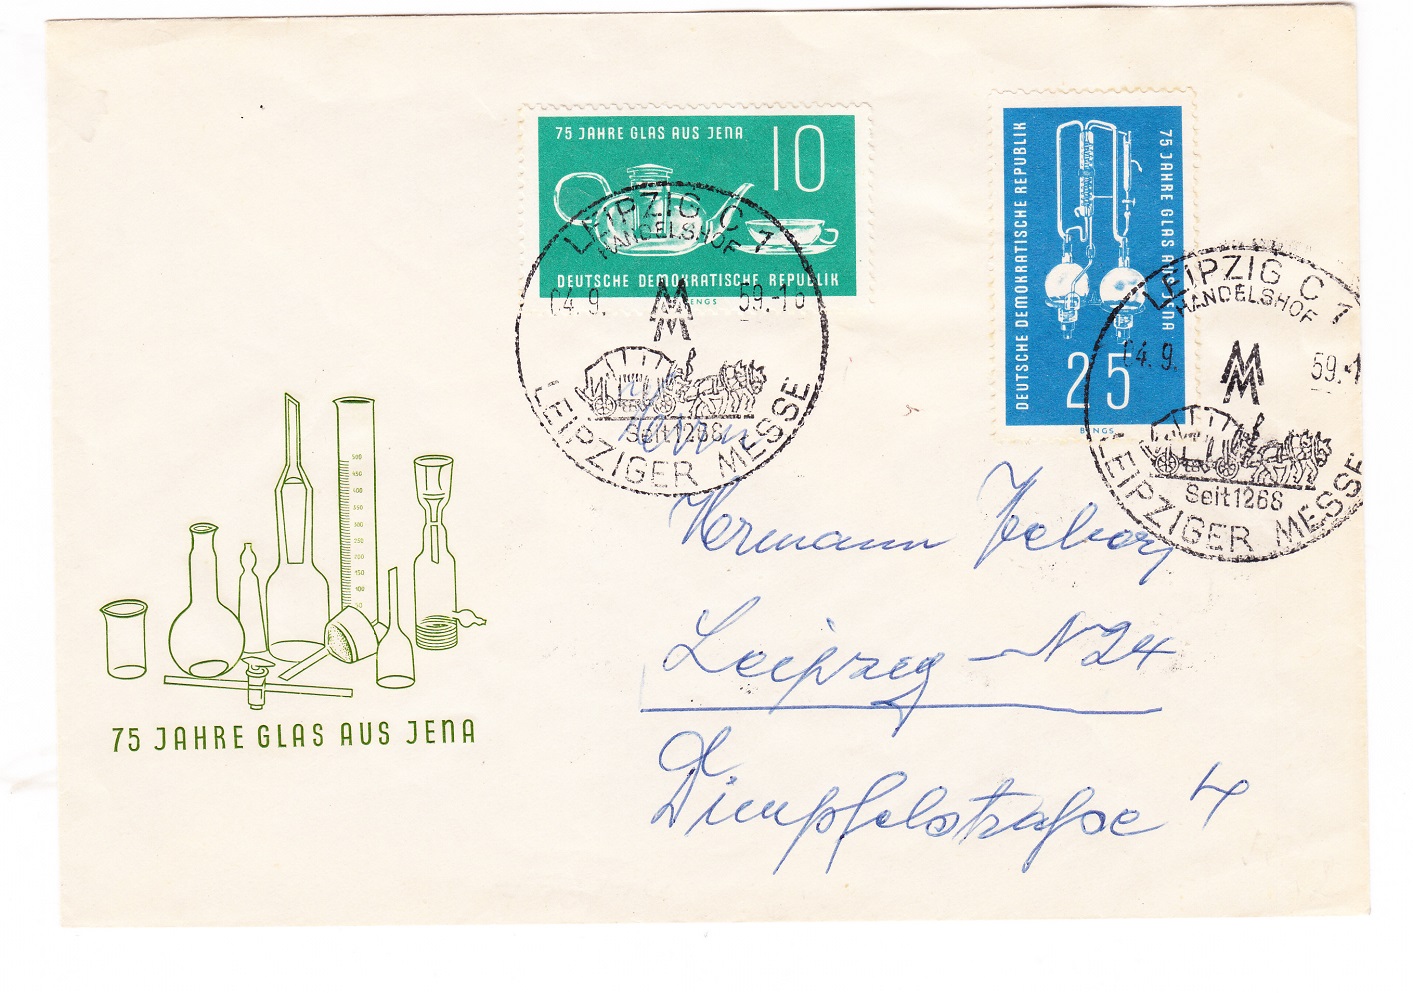 75 JAHRE GLAS AUS JENA
10
DEUTSCHE DEMOKRATISCHE REPUBLIK
BENGS
LEIPZIG C 1
HANDELSHOF
04.9. 59.-16
MM
Seit 1268
LEIPZIGER MESSE
DEUTSCHE DEMOKRATISCHE REPUBLIK
75 JAHRE GLAS AUS JENA
25
BENGS
LEIPZIG C 1
HANDELSHOF
04.9. 59.-1
MM
Seit 1268
LEIPZIGER MESSE
Herrn
Hermann
Leipzig - N 24
Dimpfelstraße 4
500
450
400
350
300
250
150
100
50
75 JAHRE GLAS AUS JENA